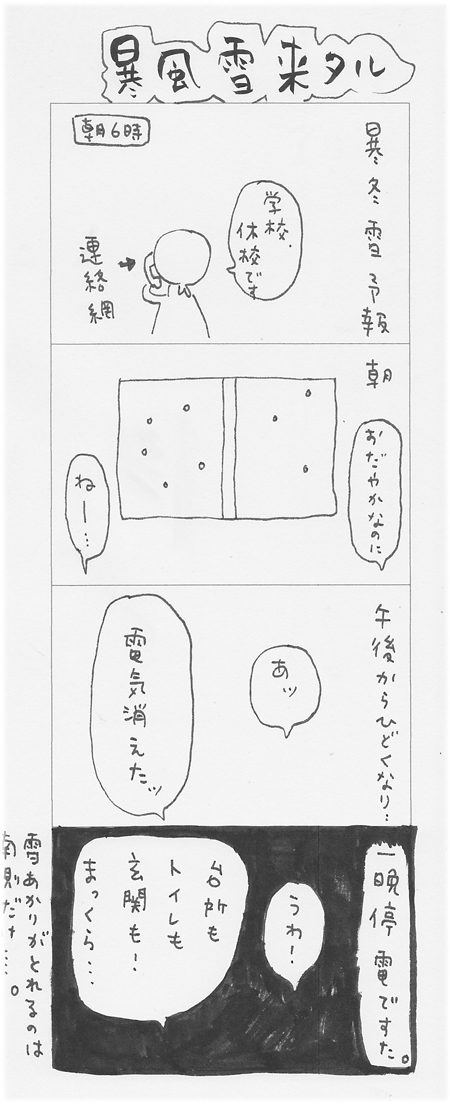 暴風雪来タル
暴冬雪予報
朝6時
学校、
休校です
連絡網
朝
おだやかなのに
ねー…
午後からひどくなり…
あッ
電気消えたッ
一晩停電ですた。
うわ!
台所も
トイレも
玄関も!
まっくら…
雪あかりがとれるのは
南側だけ…。